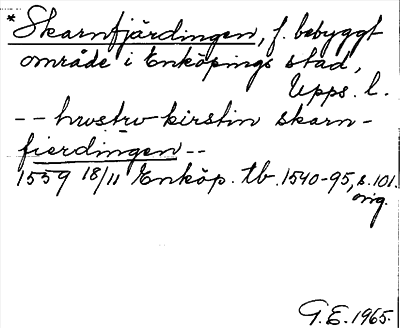 * Skarnfjärdingen, f. bebyggt
område i Enköpings stad,
Upps. l.
-- hwstrv kirstin skarn-
fierdingen --
1559 18/11 Enköp. tb. 1540-95, s. 101.
orig.
G.E. 1965.